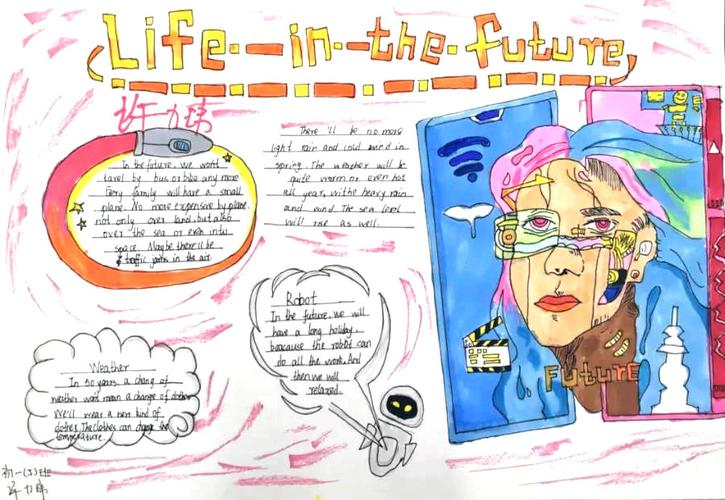 Life in the future
In the future, we won't
tavel by bus or bike any more
Every family will have a small
plane. No more expensive by plane.
not only over land, but also
over the sea or even into
space. Maybe there'll be
traffic jams in the air.
There'll be no more
light rain and cold wind in
spring. The weather will be
quite warm or even hot
all year, with heavy rain
and wind. The sea level
will rise as well.
Robot
In the future, we will
have a long holiday,
because the robot can
do all the work. And
then we will
relaxed.
Weather
In 50 years. a chang of
weather won't mean a change of clothes
We'll wear a new kind of
clothes. The clothes can change the
temperature.
FuturE
初一(3)班